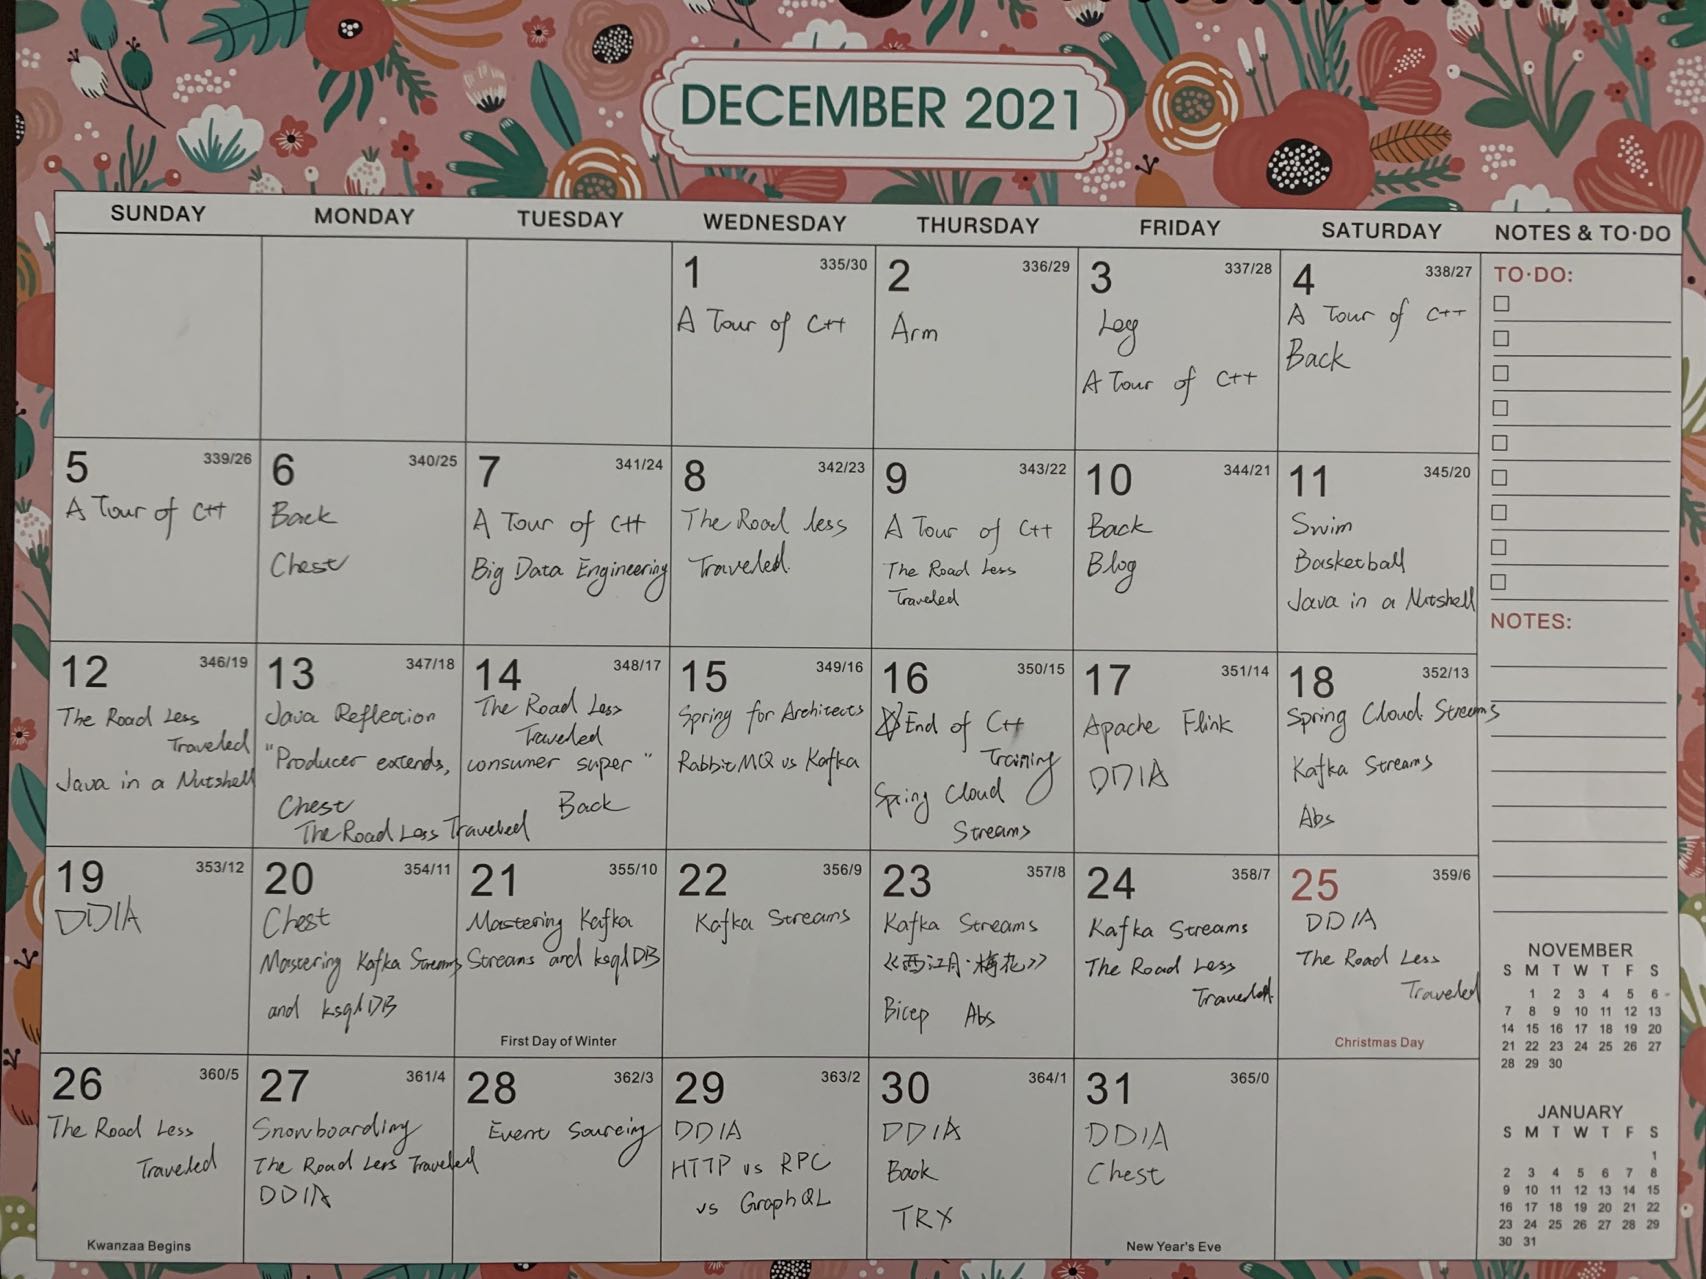 DECEMBER 2021
SUNDAY MONDAY TUESDAY WEDNESDAY THURSDAY FRIDAY SATURDAY NOTES & TO·DO
1 335/30
A Tour of C++
2 336/29
Arm
3 337/28
Leg
A Tour of C++
4 338/27
A Tour of C++
Back
5 339/26
A Tour of C++
6 340/25
Back
Chest
7 341/24
A Tour of C++
Big Data Engineering
8 342/23
The Road less
Traveled
9 343/22
A Tour of C++
The Road Less
Traveled
10 344/21
Back
Blog
11 345/20
Swim
Basketball
Java in a Nutshell
12 346/19
The Road Less
Traveled
Java in a Nutshell
13 347/18
Java Reflection
"Producer extends, consumer super"
Chest
The Road Less Traveled
14 348/17
The Road Less
Traveled
Back
15 349/16
Spring for Architects
RabbitMQ vs Kafka
16 350/15
End of C++
Training
Spring Cloud
Streams
17 351/14
Apache Flink
DDIA
18 352/13
Spring Cloud Streams
Kafka Streams
Abs
19 353/12
DDIA
20 354/11
Chest
Mastering Kafka Streams
and ksqlDB
21 355/10
Mastering Kafka
Streams and ksqlDB
First Day of Winter
22 356/9
Kafka Streams
23 357/8
Kafka Streams
《西江月·梅花》
Bicep Abs
24 358/7
Kafka Streams
The Road Less
Traveled
25 359/6
DDIA
The Road Less
Traveled
Christmas Day
26 360/5
The Road Less
Traveled
Kwanzaa Begins
27 361/4
Snowboarding
The Road Less Traveled
DDIA
28 362/3
Event Sourcing
29 363/2
DDIA
HTTP vs RPC
vs GraphQL
30 364/1
DDIA
Back
TRX
31 365/0
DDIA
Chest
New Year's Eve
TO·DO:
NOTES:
NOVEMBER
S M T W T F S
1 2 3 4 5 6
7 8 9 10 11 12 13
14 15 16 17 18 19 20
21 22 23 24 25 26 27
28 29 30
JANUARY
S M T W T F S
1
2 3 4 5 6 7 8
9 10 11 12 13 14 15
16 17 18 19 20 21 22
23 24 25 26 27 28 29
30 31